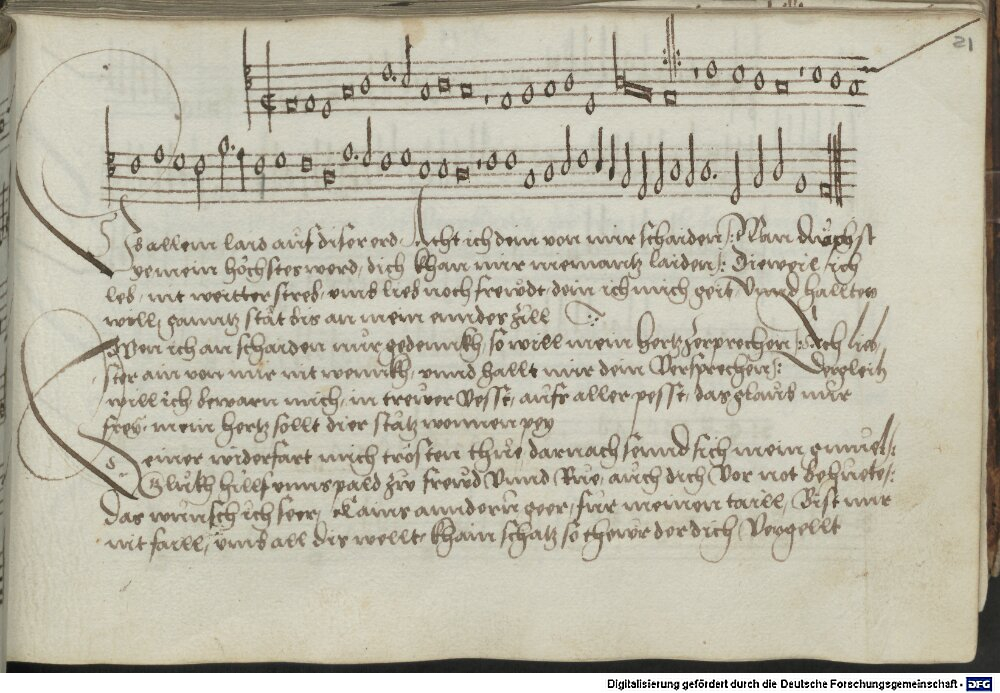 21
Fur allem laid auf diser erd. Acht ich dein von mir schaiden /: Wan du pist
ye mein höchstes werd, dich khan mir niemantz laiden /: Dieweil ich
leb, nit weitter streb, umb lieb noch frewdt, dein ich mich geit, Unnd hallten
will, ganntz stät bis an mein enndes zill
Wen ich an schaiden nur gedennkh, so will mein hertz zerprechen /: Ach lieb
ster ain von mir nit wennkh, unnd hallt mir dein Versprechen /: Dergleich
will ich bewarn mich, in trewer Vesst, aufs aller pesst, das glaub mir
frey, mein hertz sollt dier stätz wonnen pey
S einer widerfart mich trösten thue, darnach sennd sich mein gmuet /:
Gluckh hillf unns pald zu frewd Unnd Rue, auch dich Vor not behuete /:
Das wunsch ich seer, kains anndern geer, fur meinen taill, Bist mir
nit faill, umb all dis wellt khain schatz so thewr der dich Vergellt
Digitalisierung gefördert durch die Deutsche Forschungsgemeinschaft - DFG